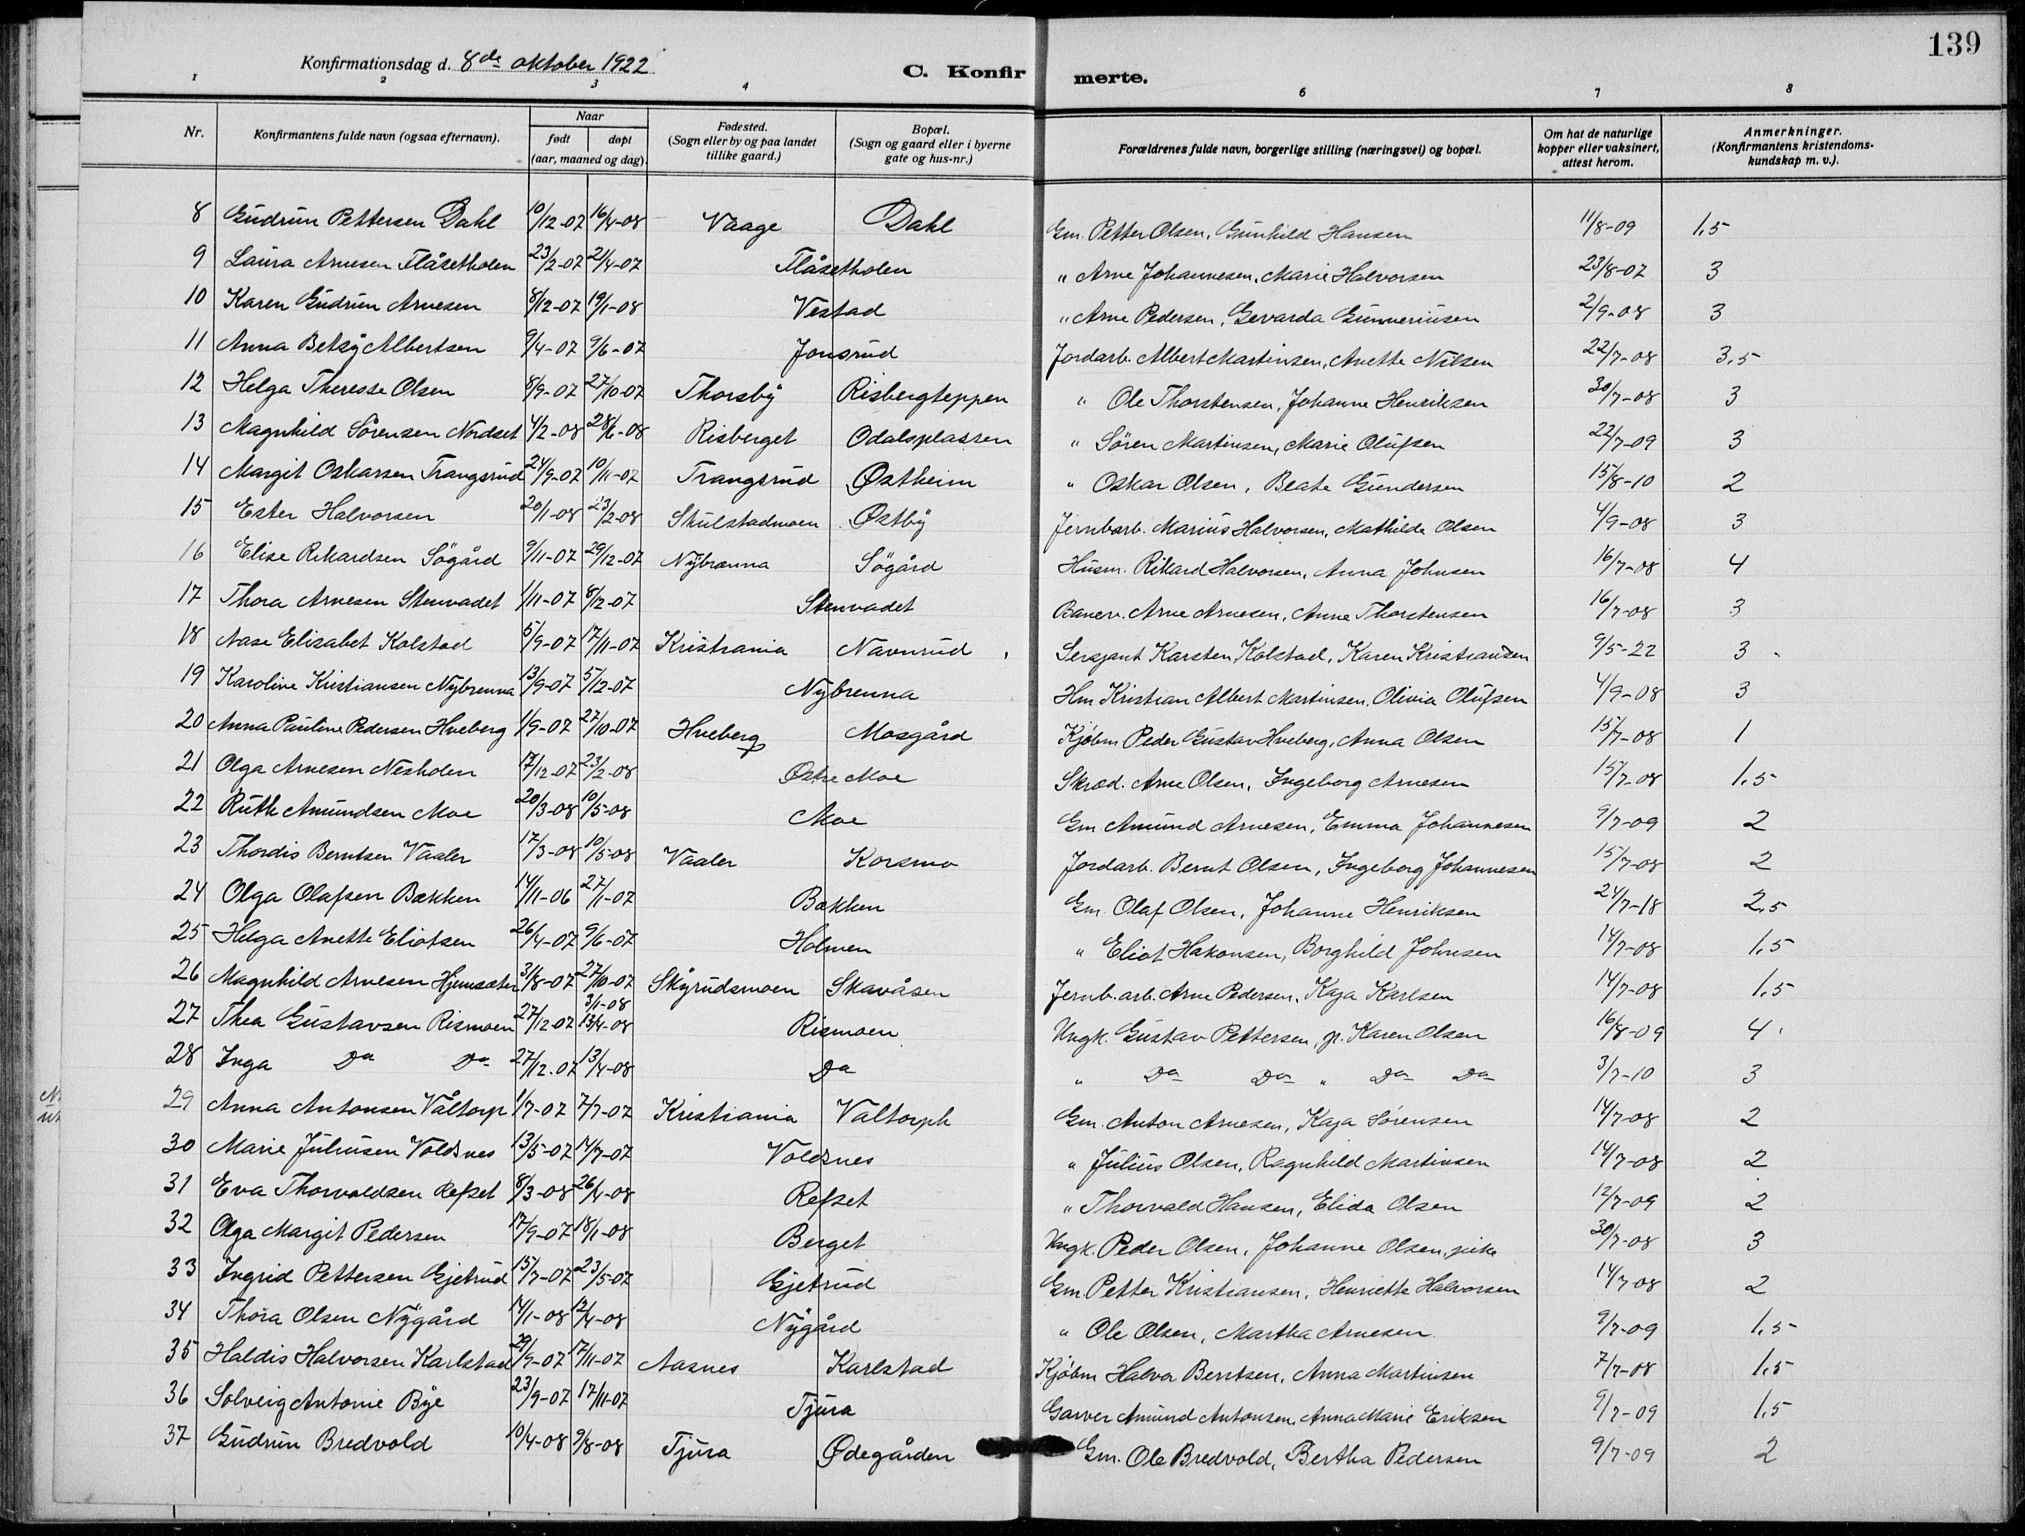 139
Konfirmationsdag d. 8de oktober 1922.
C. Konfirmerte.
1 2 3 4 6 7 8
Nr. | Konfirmantens fulde navn (ogsaa efternavn). | Naar født | døpt (aar, maaned og dag). | Fødested. (Sogn eller by og paa landet tillike gaard.) | Bopæl. (Sogn og gaard eller i byerne gate og hus-nr.) | Forældrenes fulde navn, borgerlige stilling (næringsvei) og bopæl. | Om hat de naturlige kopper eller vaksinert, attest herom. | Anmerkninger. (Konfirmantens kristendoms-kundskap m. v.).
8 Gudrun Pettersen Dahl 10/12-07 16/4-08 Vaage Dahl Gm. Petter Olsen, Gunhild Hansen 11/8-09 1,5
9 Laura Arnesen Flåsetholen 23/2-07 21/4-07 Flåsetholen " Arne Johannesen, Marie Halvorsen 23/8-07 3
10 Karen Gudrun Arnesen 8/12-07 19/1-08 Vestad " Arne Pedersen, Gevarda Gunneriusen 2/9-08 3
11 Anna Betsy Albertsen 9/4-07 9/6-07 Jonsrud Jordarb. Albert Martinsen, Anette Nilsen 22/7-08 3,5
12 Helga Theresse Olsen 8/9-07 27/10-07 Thorsby Risbergteppen " Ole Thorstensen, Johanne Henriksen 30/7-08 3
13 Magnhild Sörensen Nordset 4/2-08 28/6-08 Risberget Odalsplassen " Sören Martinsen, Marie Olufsen 22/7-09 3
14 Margit Oskarsen Trangsrud 24/9-07 10/11-07 Trangsrud Østheim " Oskar Olsen, Beate Gundersen 15/8-10 2
15 Ester Halvorsen 20/1-08 23/2-08 Skulstadmoen Østby Jernbarb. Marius Halvorsen, Mathilde Olsen 4/9-08 3
16 Elise Rikardsen Sögård 9/11-07 29/12-07 Nybrenna Sögård Husm. Rikard Halvorsen, Anna Johnsen 16/7-08 4
17 Thora Arnesen Stenvadet 1/11-07 8/12-07 Stenvadet Banev. Arne Arnesen, Anne Thorstensen 16/7-08 3
18 Aase Elisabet Kolstad 5/9-07 17/11-07 Kristiania Navnrud Sersjant Karsten Kolstad, Karen Kristiansen 9/5-22 3
19 Karoline Kristiansen Nybrenna 13/9-07 5/12-07 Nybrenna Hm Kristian Albert Martinsen, Olivia Olufsen 4/9-08 3
20 Anna Pauline Pedersen Hveberg 1/9-07 27/10-07 Hveberg Mosgård Kjøbm Peder Gustav Hveberg, Anna Olsen 15/7-08 1
21 Olga Arnesen Nesholen 17/12-07 23/2-08 Østre Moe Skræd. Arne Olsen, Ingeborg Arnesen 15/7-08 1,5
22 Ruth Amundsen Moe 20/3-08 10/5-08 Moe Gm Amund Arnesen, Emma Johannesen 9/7-09 2
23 Thordis Berntsen Vaaler 17/3-08 10/5-08 Vaaler Korsmo Jordarb. Bernt Olsen, Ingeborg Johannesen 15/7-08 2
24 Olga Olafsen Bækken 14/11-06 27/1-07 Bækken Gm. Olaf Olsen, Johanne Henriksen 24/7-18 2,5
25 Helga Anette Eliotsen 26/4-07 9/6-07 Holmen " Eliot Hakonsen, Borghild Johnsen 14/7-08 1,5
26 Magnhild Arnesen Hjemsæter 31/8-07 27/10-07 Skyrudsmoen Skavåsen Jernb.arb. Arne Pedersen, Kaja Karlsen 14/7-08 1,5
27 Thea Gustavsen Rismoen 27/12-07 3/1-08 13/4-08 Rismoen Ungk. Gustav Pettersen, p. Karen Olsen 16/8-09 4
28 Inga Do Do 27/12-07 13/4-08 Do " Do Do " Do Do 3/7-10 3
29 Anna Antonsen Våltorp 1/7-07 7/7-07 Kristiania Valtorph Gm. Anton Arnesen, Kaja Sørensen 14/7-08 2
30 Marie Juliusen Voldsnes 13/5-07 14/7-07 Voldsnes " Julius Olsen, Ragnhild Martinsen 14/7-08 2
31 Eva Thorvaldsen Refset 8/3-08 26/4-08 Refset " Thorvald Hansen, Elida Olsen 12/7-09 2
32 Olga Margit Pedersen 17/9-07 18/1-08 Berget Ungk. Peder Olsen, Johanne Olsen, pike 30/7-08 3
33 Ingrid Pettersen Gjetrud 15/7-07 23/5-07 Gjetrud Gm. Petter Kristiansen, Henriette Halvorsen 14/7-08 2
34 Thora Olsen Nygård 14/1-08 12/4-08 Nygård " Ole Olsen, Martha Arnesen 9/7-09 1,5
35 Haldis Halvorsen Karlstad 29/9-07 17/11-07 Aasnes Karlstad Kjøbm Halvor Berntsen, Anna Martinsen 7/7-08 1,5
36 Solveig Antonie Bye 23/9-07 17/11-07 Tjura Garver Amund Antonsen, Anna Marie Eriksen 9/7-09 1,5
37 Gudrun Bredvold 10/4-08 9/8-08 Tjura Ødegården Gm. Ole Bredvold, Bertha Pedersen 9/7-09 2